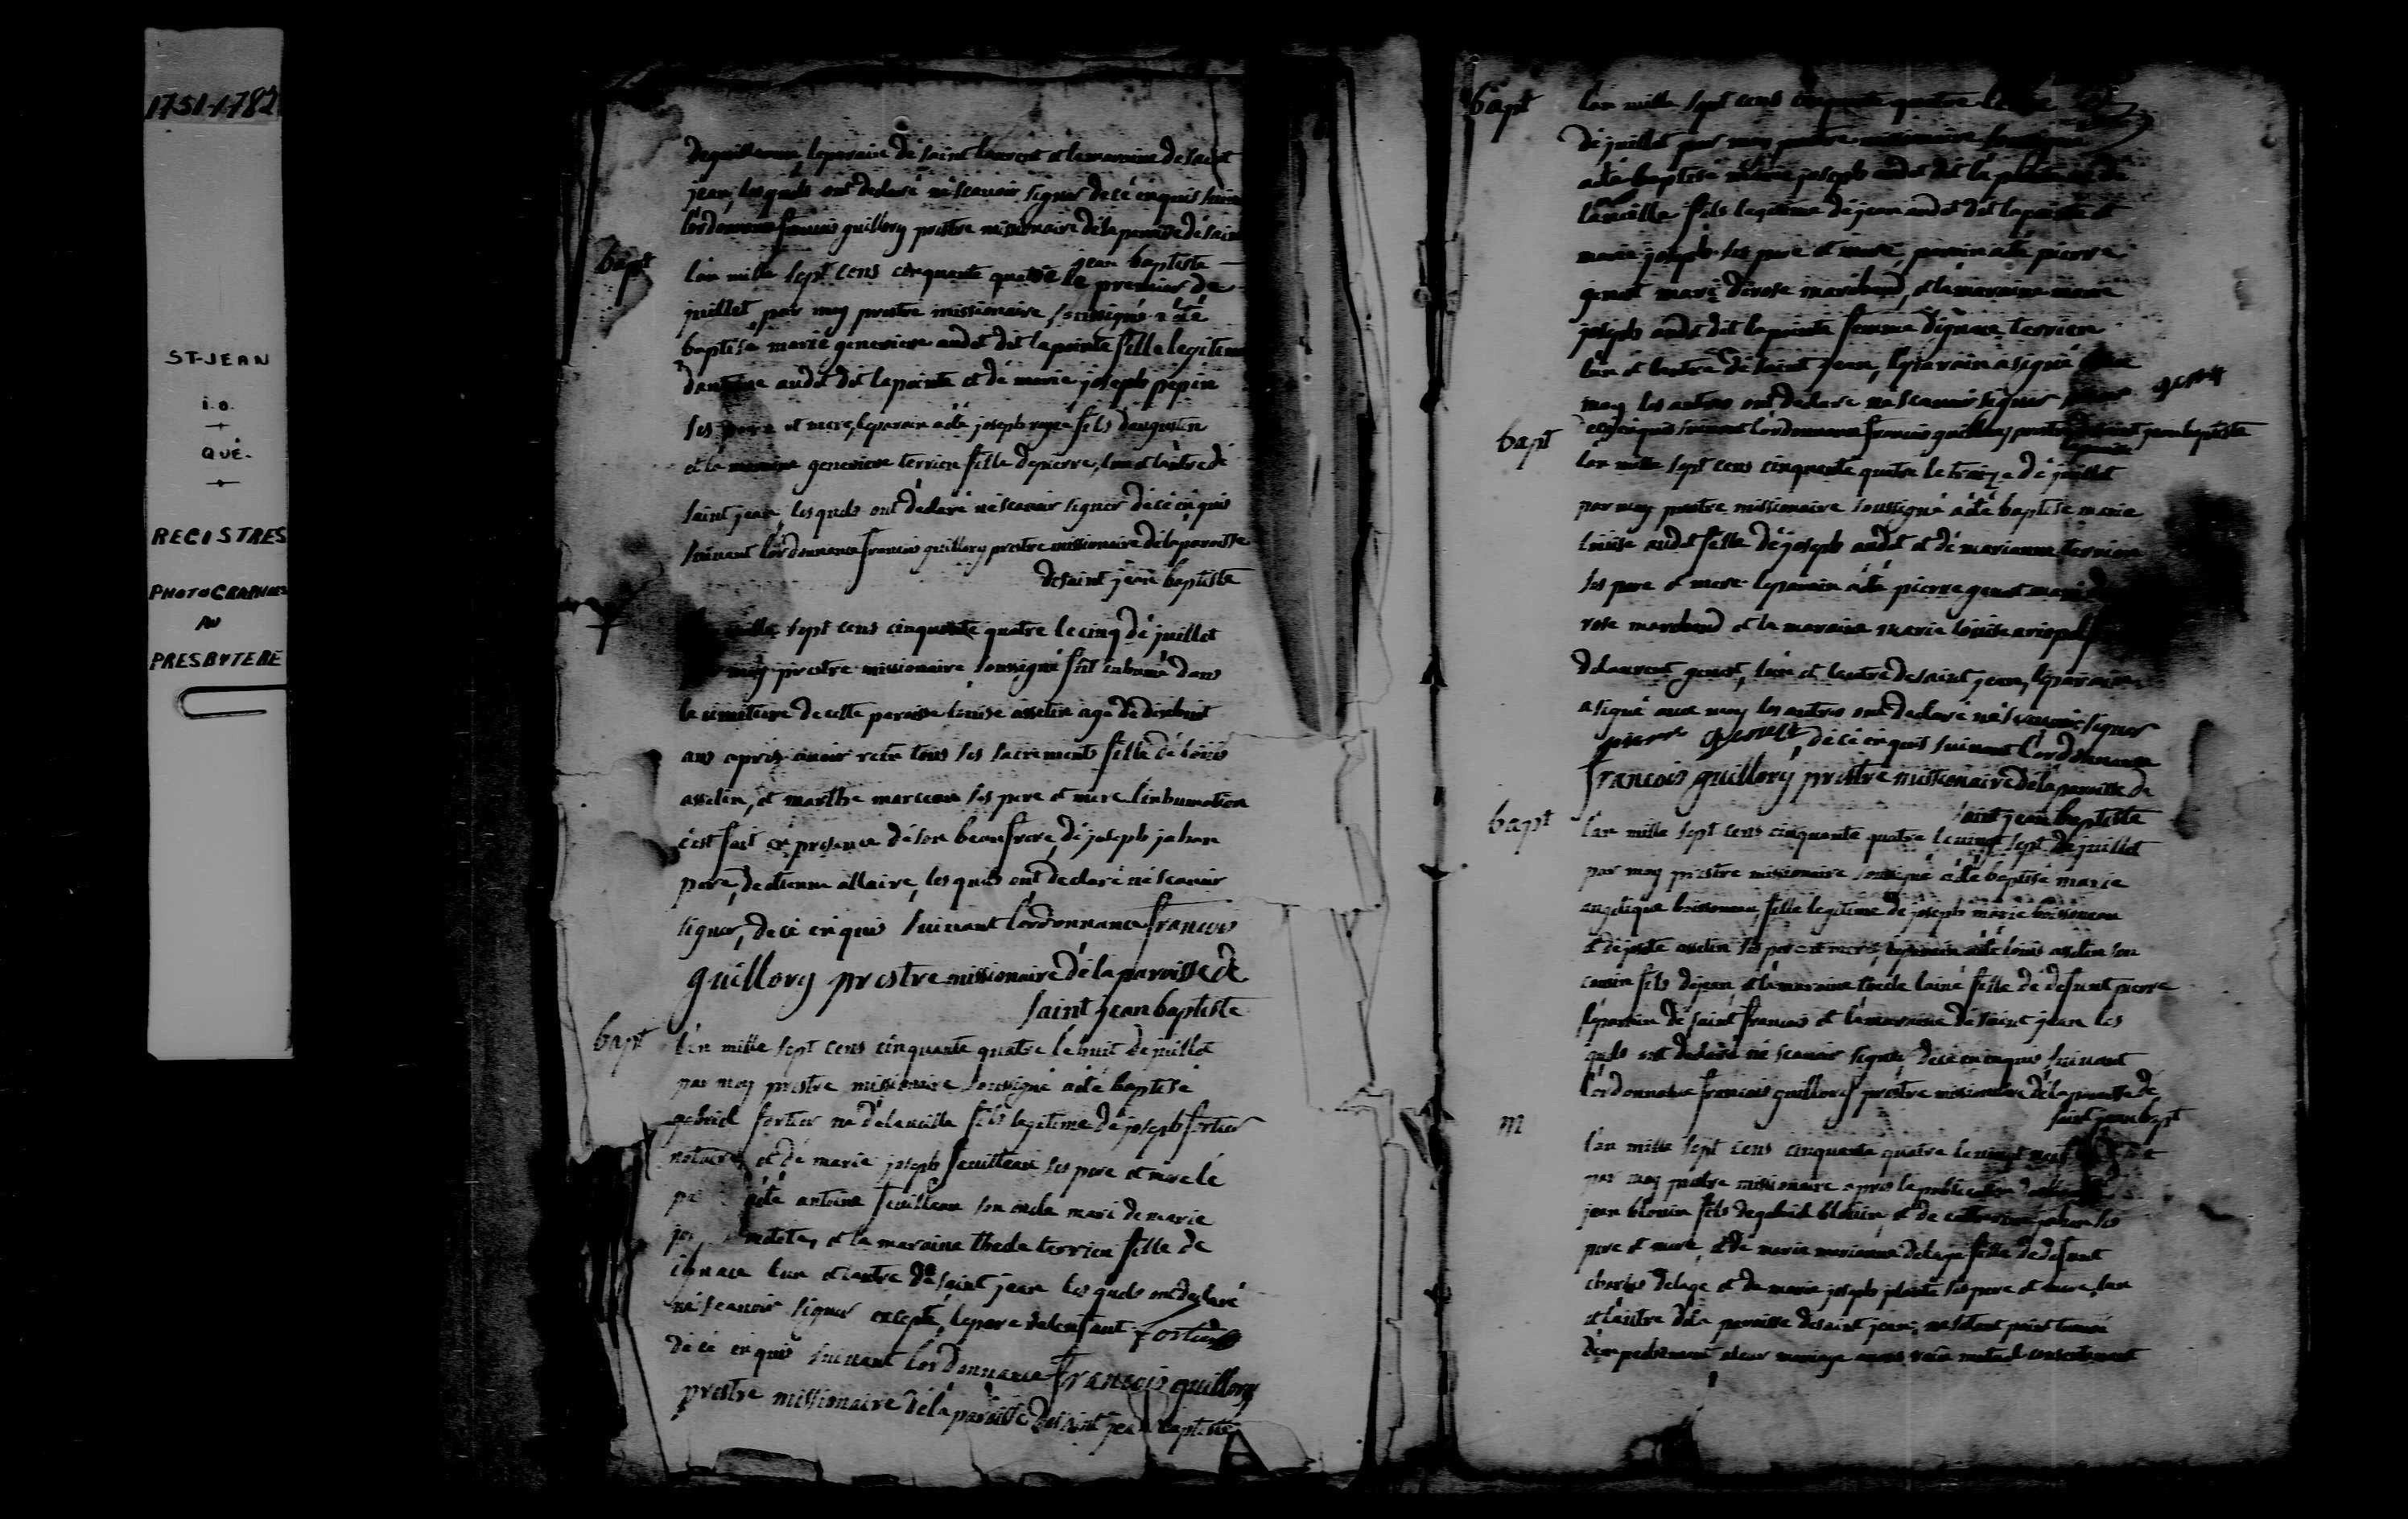 1751-1782
ST-JEAN
i.o.
QUÉ.
REGISTRES
PHOTOGRAPHIÉS
AU
PRESBYTERE
leparain de saint laurent et lamaraine de saint
jean, lesquels ont declaré né scavoir signer de cé enquis suiv
l'ordonnance francois guillory prestre missionaire dé la paroisse dé saint
jean baptiste
bapt
l'an mille sept cens cinquante quatre le premier de
juillet par moy prestre missionaire soussigné a été
baptisé marie genevieve audet dit lapointe fille legitime
dantoine audet dit lapointe et dé marie joseph pepin
ses pere et mere, leparain a été joseph fils daugustin
et la maraine genevieve terrien fille depierre, lun et lautre dé
saint jean, lesquels ont déclaré né scavoir signer dé cé enquis
suivant l'ordonnance francois guillory prestre missionaire dé la paroisse
desaint jean baptiste
mille sept cens cinquante quatre le cinq dé juillet
moy prestre missionaire soussigné fut inhumé dans
le cimitiere de cette paroisse louise asselin agé dé dixhuit
ans aprés avoir recu tous ses sacrements fille dé louis
asselin, et marthe marceau ses pere et mere l'inhumation
c'est fait en presence dé son beaufrere, dé joseph jahan
pere, de etienne allaire, lesquels ont declaré né scavoir
signer, de cé enquis suivant l'ordonnance francois
guillory prestre missionaire dé la paroisse de
saint jean baptiste
bapt
l'an mille sept cens cinquante quatre le huit de juillet
par moy prestre missionaire soussigné a été baptisé
gabriel fortier né dé la veille fils legitime dé joseph fortier
notaire, et dé marie joseph feuilleau ses pere et mere lé
pa a été antoine feuilleau son oncle mari de marie
jo et la maraine thecle terrien fille de
ignace lun et lautre dé saint jean lesquels ont declaré
né scavoir signer excepté, lepere delenfant fortier
dé cé enquis suivant l'ordonnance francois guillory
prestre missionaire dé la paroisse desaint jean baptiste
bapt
l'an mille sept cens cinquante quatre le
dé juillet par moy prestre missionaire soussigné
a été baptisé joseph audet dit lapointe né de
la veille fils legitime dé jean audet dit lapointe et
marie joseph ses pere et mere, parain a été pierre
genest mari dé rose marchand, et la maraine marie
joseph audet dit lapointe femme dignace terrien
lun et lautre dé saint jean, leparain a signé avec
moy les autres ont declaré né scavoir signer pierre genest
dé cé enquis suivant l'ordonnance francois guillory prestre saint jean baptiste
bapt
l'an mille sept cens cinquante quatre le treize dé juillet
par moy prestre missionaire soussigné a été baptisé marie
louise audet fille dé joseph audet et dé marianne terrien
ses pere et mere leparain a été pierre genest mari
rose marchand et la maraine marie louise
delaurent genest, lun et lautre desaint jean, leparain
a signé avec moy les autres ont declaré né scavoir signer
pierre genest, dé cé enquis suivant l'ordonnance
francois guillory prestre missionaire dé la paroisse de
saint jean baptiste
bapt
l'an mille sept cens cinquante quatre le vingt sept dé juillet
par moy prestre missionaire soussigné a été baptisé marie
angelique boissoneau, fille legitime dé joseph marie boissoneau
et dé asselin ses pere et mere, leparain a été louis asselin son
cousin fils dé jean, et la maraine thecle lainé fille dé défunt pierre
leparain dé saint francois et lamaraine dé saint jean les
quels ont declaré né scavoir signer, dé cé enquis, suivant
l'ordonnance francois guillory prestre missionaire dé la paroisse de
saint jean bapt
m
l'an mille sept cens cinquante quatre le vingt neuf
par moy prestre missionaire aprés la publication
jean blouin fils degabriel blouin, et de catherine jahan ses
pere et mere, et dé marie marianne delage fille dé défunt
charles delage et de marie joseph plante ses pere et mere, lun
et lautre dé la paroisse desaint jean, né sétant point trouvé
d'empechement aleur mariage avons recu mutuel consentement